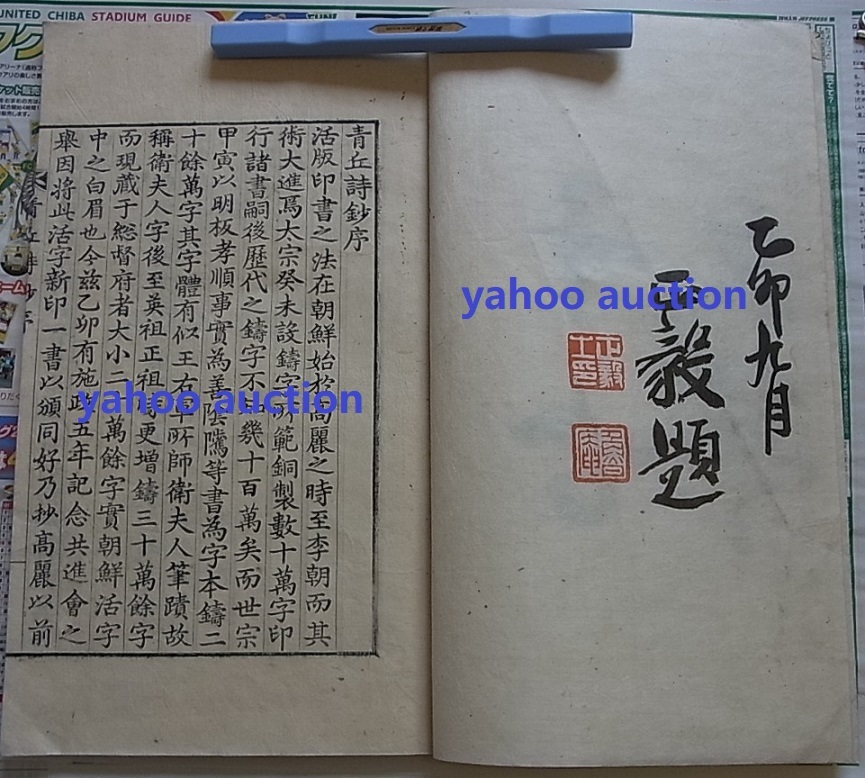 UNITED CHIBA STADIUM GUIDE
乙卯九月
正毅題
yahoo auction
青丘詩鈔序
活版印書之法在朝鮮始於高麗之時至李朝而其
術大進焉大宗癸未設鑄字所範銅製數十萬字印
行諸書嗣後歷代之鑄字不知幾十百萬矣而世宗
甲寅以明板孝順事實為善陰隲等書為字本鑄二
十餘萬字其字體有似王右軍所師衛夫人筆蹟故
稱衛夫人字後至英祖正祖時更增鑄三十萬餘字
而現藏于総督府者大小二十萬餘字實朝鮮活字
中之白眉也今茲乙卯有施政五年記念共進會之
舉因將此活字新印一書以頒同好乃抄高麗以前
yahoo auction